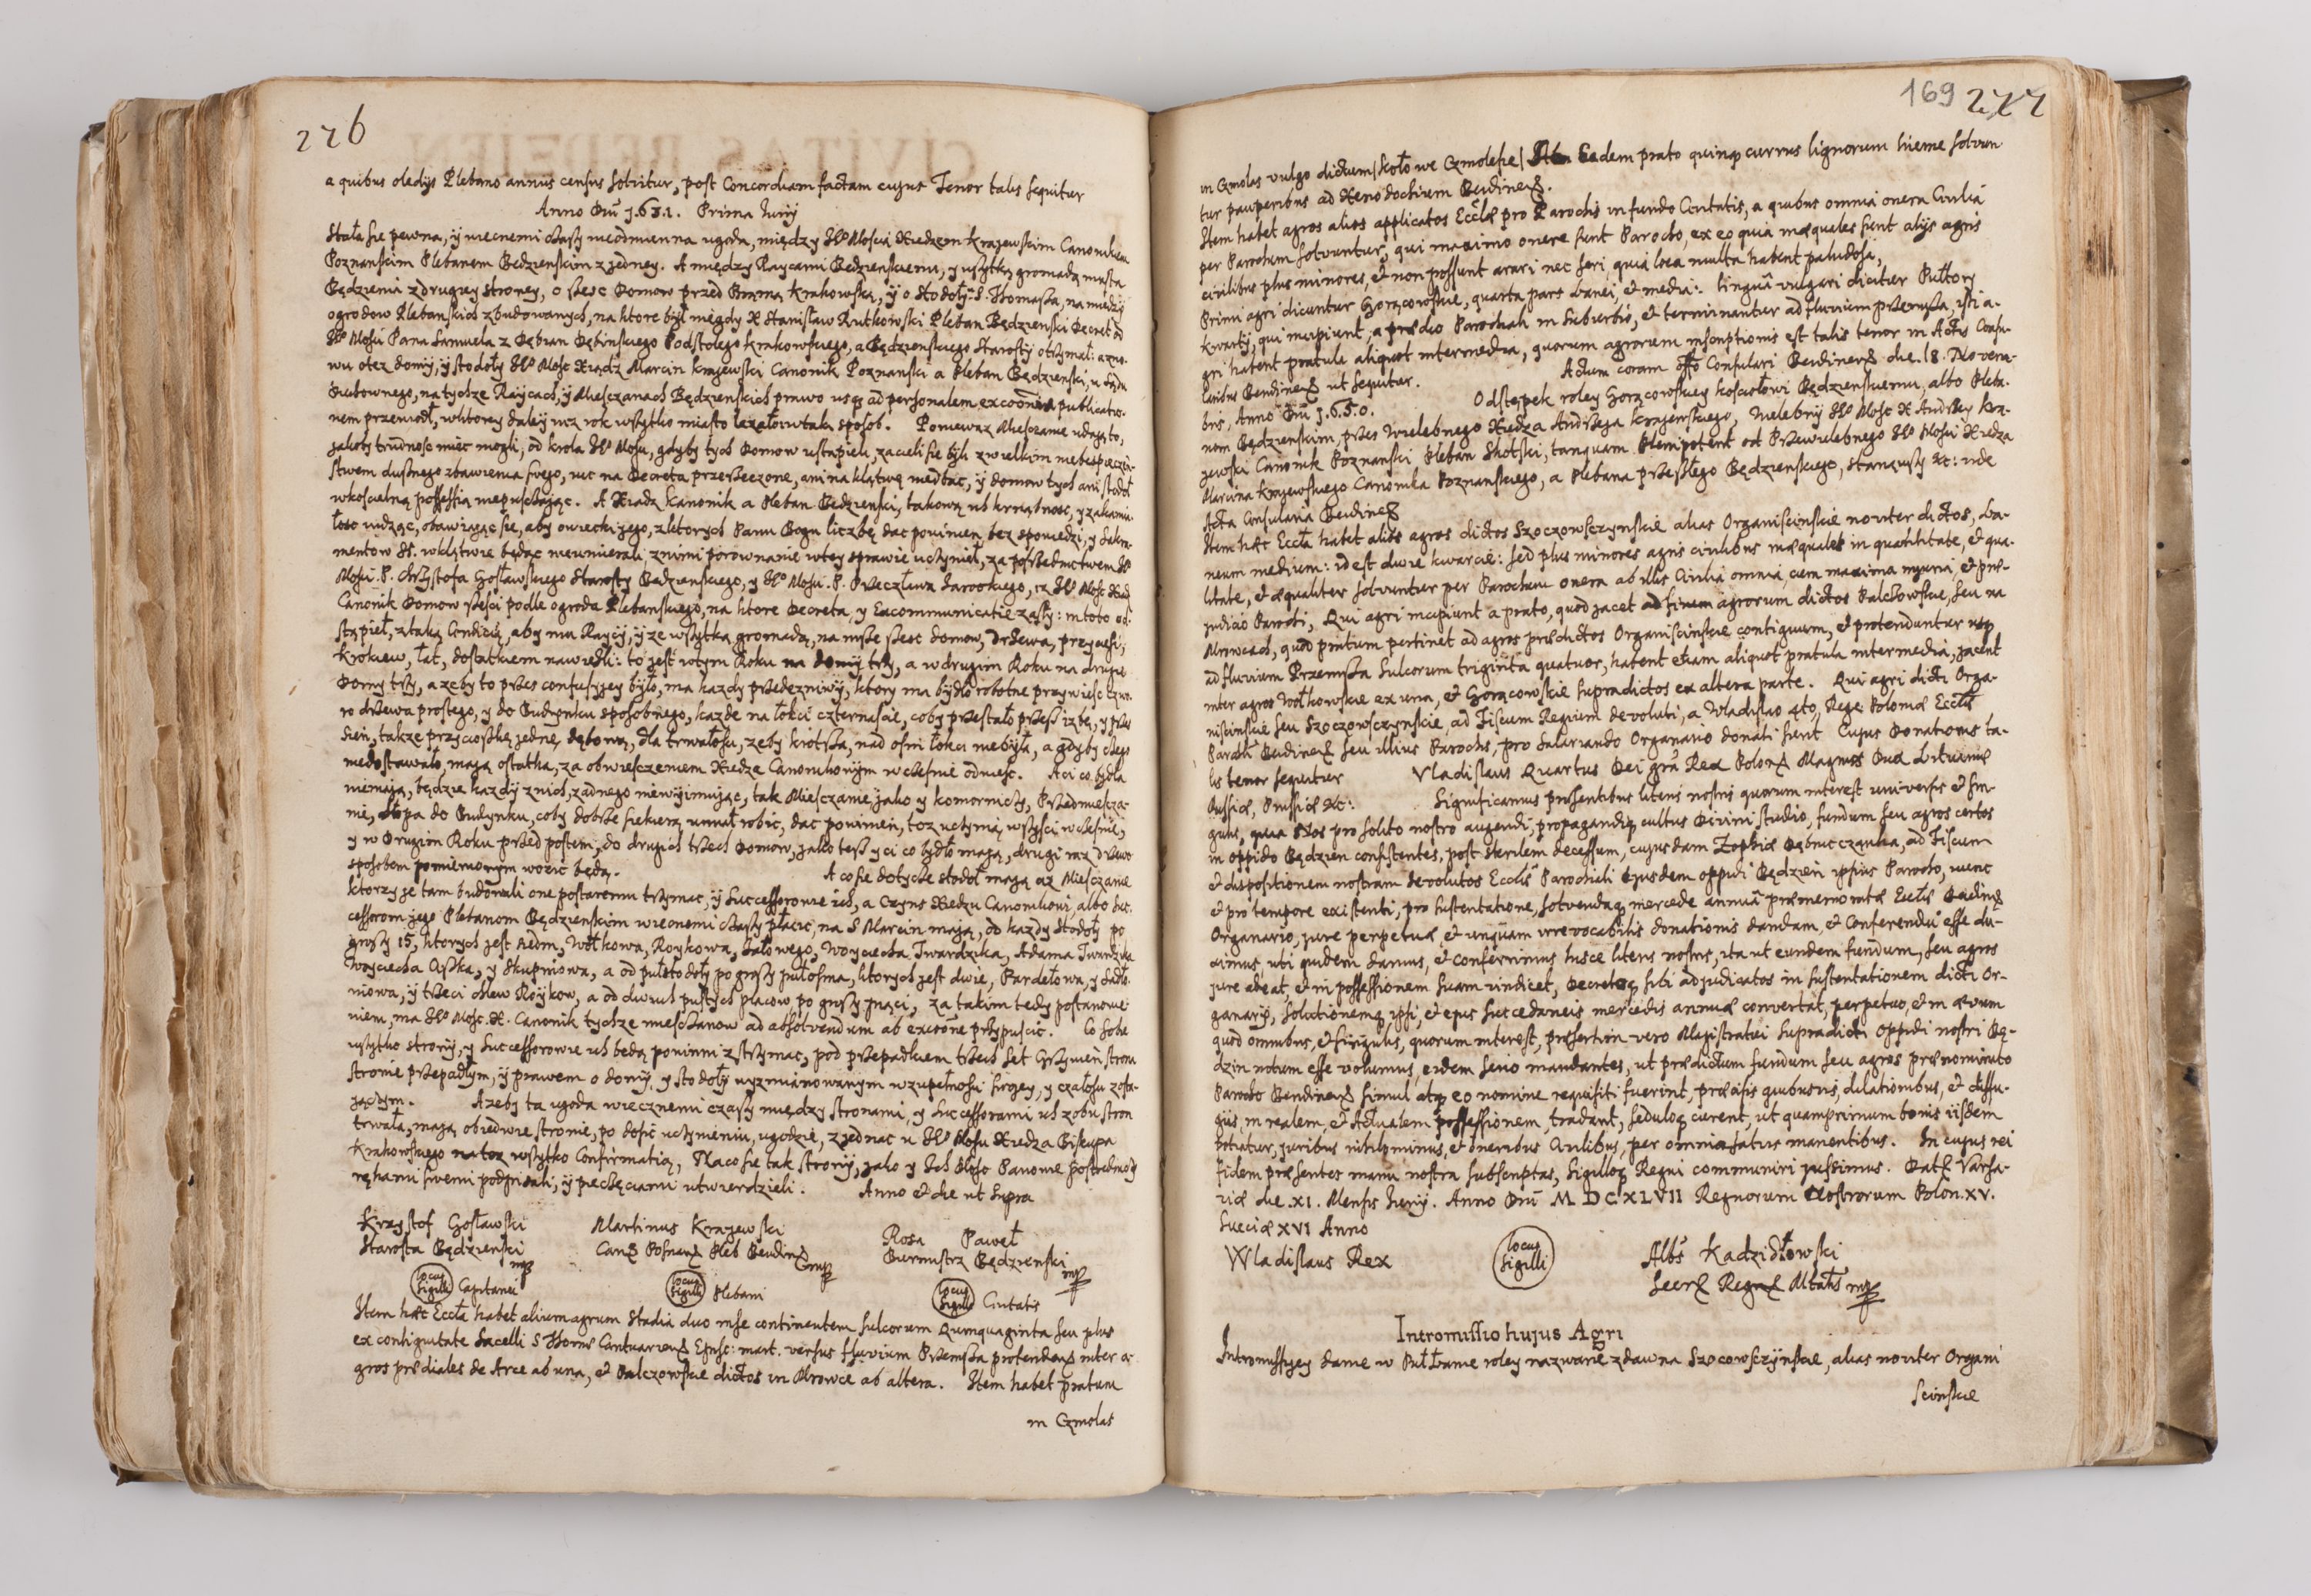 276
a quibus oledijs Plebano annus census solvitur, post Concordiam factam cujus Tenor talis sequitur
Anno Dni 1.651. Prima Junij
Stała się pewna, ij wiecnemi czasy nieodmienna ugoda, między Je Mością Xiedzem Krajewskim Canonikiem
Poznanskim Plebanem Bedzienskim z jedney. A między Raycami Bedzienskiemi, y wszytką gromadą miasta
Będzienia z drugiey strony, o szesc Domow przed Bramą Krakowską, ij o stodoły S. Thomasza, na miedzij
ogrodow Plebanskich zbudowanych, na ktore był niegdy X Stanisław Rutkowski Pleban Będzienski Decret od
Je Mości Pana Samuela z Dębian Dębinskiego Podstolego Krakowskiego, a Będzienskiego Starosty otrzymał: a zno-
wu otez domij, ij stodoły Je Mosc Xiądz Marcin Krajewski Canonik Poznanski a Pleban Będzienski, u Sądu
Duchownego, na tychze Raijcach, ij Miesczanach Będzienskich prawo usq ad personalem excoõnis publicatio-
nem przewiodł, w ktorey daley niz rok wszytko miasto lezało w taki sposob. Poniewaz Miesczanie udają to,
jakoby trudnosc miec mogli, od Krola Je Mosci, gdyby tych Domow ustąpieli, zacieli sie byli z wielkim niebespieczen-
stwem dusznego zbawienia swego, nic na Decreta przerzeczone, ani na klątwę niedbac, ij domow tych ani stodoł
w koscielną possessią niepusczając. A Xiadz Kanonik a Pleban Bedzienski, takową ich krnąbnosc, y zakamia-
łosc widząc, obawiając sie, aby owiecki jego, z ktorych Panu Bogu liczbę dac powinien, bez spowiedzi, y Sakra-
mentow SS. w klątwie będąc nieumierali z nimi porownanie w tey sprawie uczynieł, za posrzednictwem Je
Mosci P. Chrzysztofa Gosławskiego Starosty Bedzienskiego, y Je Mosci P. Przecława Jarockiego, iz Je Mosc Xiadz
Canonik Domow szesci podle ogroda Plebanskiego, na ktore Decreta, y Excommunicatie zaszły: in toto od-
stąpieł, z taką Condicią, aby mu Raycy, ij ze wszytką gromadą, na insze szesc domow, Drzewa, przyciesi,
Krokiew, łat, dostatkiem nawiezli: to jest w tym Roku na domij trzy, a w drugim Roku na drugie
Domy trzy, a zeby to przez confusijey było, ma kazdy przedezniwij, ktory ma bydło robotne przywiesc czwo-
ro drzewa prostego, y do Budynku sposobnego, kazde na łokci czternascie, coby przestało przesz izbę, y przez
sien, takze przyciosskę jednę dębową, dla trwałosci, zeby krotsza, nad osm łokci niebyła, a gdyby czego
niedostawało, mają ostatka, za obwiesczeniem Xiedze Canonikowijm wczesnie odwiesc. A ci co bydła
niemają, będzie kazdij z nich, zadnego niewyimując, tak Miesczanie jako y komornicy, Przedmiescza-
nie, chłopa do Budynku, coby dobrze siekierą umiał robic, dac powinien, toz uczynią wszyscy wczesnie,
y w Drugim Roku przed postem, do drugich trzech Domow, jako tesz y ci co bydło mają, drugi raz Drzewo
sposobem pomienionym wozic będą. A co sie dotycze stodoł mają az Miesczanie
ktorzy je tam budowali one postaremu trzymac, ij Successorowie ich, a Czyns Xiedzu Canonikowi, albo Suc-
cessorom jego Plebanom Będzienskim wiecnemi czasy płacic, na S Marcin mają, od kazdy Stodoły po
groszy 15, ktorych jest siedm, Wołkowa, Roykowa, Jałowego, Woyciecha Twardzika, Adama Twardzika
Woyciecha Ciszka, y Skupniowa, a od pułstodoły po groszy pułosma, ktorych jest dwie, Pardełowa, y Sidło-
niowa, ij trzeci chlew Roijkow, a od dwuch pustych placow po groszy piąci, za takim tedy postanowie-
niem, ma Je Mosc X. Canonik tychze miesczanow ad absolvendum ab excoõne przypuscic. Co sobe
wszytko stronij, y Successorowie ich bedą powinni zstrzymac, pod przepadkiem trzech set Grzywien stronie
stronie przepadłym, ij prawem o domij, y stodoły wyzmianowanym w zupełnosci swojey, y czałosci zosta-
jącym. A zeby ta ugoda wiecznemi czasy między stronami, y Successorami ich z obu stron
trwała, mają obiedwie stronie, po dosić uczynieniu, ugodzie, zjednac u Je Mosci Xiedza Biskupa
Krakowskiego na toz wszytko Confirmatią, Na co sie tak stronij, jako y Ich Mosc Panowie posrzednicy
rękami swemi podpisali, ij pieczęciami utwierdzieli. Anno et die ut supra
Krzysztof Gosławski Martinus Krajewski Rosa Paweł
Starosta Będzienski mp Can Posnan Pleb Bendin mp Burmistrz Będzienski mp
locus Sigilli Capitanei locus Sigilli Plebani locus Sigilli Civitatis
Item hæc Eccla habet alium agrum Stadia duo in se continentem sulcorum Quinquaginta seu plus
ex contiguitate Sacelli S Thomæ Cantuarien Episc: mart. versus fluvium Przemsza protenden inter a-
gros prædiales de Arce ab una, et Palczowskie dictos in Mrowce ab altera. Item habet pratum
in Czmolas
169 277
in Czmolas vulgo dictum / Koło we Czmolesie / Eadem prato quinq currus lignorum hieme solvun
tur pauperibus ad Xenodochium Bendinen.
Item habet agros alios applicatos Ecclæ pro Parochis in fundo Civitatis, a quibus omnia onera Civilia
per Parochum solvuntur, qui maximo onere sunt Parocho, ex eo quia inæquales sunt alijs agris
civilibus plus minores, et non possunt arari nec seri quia loca multa habent paludosa,
Primi agri dicuntur Gorącowskie, quarta pars Lanei, et media: linguâ vulgari dicitur Pułtory
kwartij, qui incipiunt, a prædio Parochali in Suburbio, et terminantur ad fluvium przemsza, isti a-
gri habent pratula aliquot intermedia, quorum agrorum inscriptionis est talis tenor in Actis Consu-
laribus Bendinen ut sequitur. Actum coram Offo Consulari Bendinen die 18. Novem-
bris, Anno Dni 1.650. Odstępek roley Gorącowskiey kosciołowi Będzienskiemu, albo Pleba-
nom Będzienskim, przes Wielebnego Xiedza Andrzeja Krajewskiego, Wielebnij Je Mosc X Andrzey Kra-
jewski Canonik Poznanski Pleban Skotski, tanquam Plenipotent od Przewielebnego Je Mosci Xiedza
Marcina Krajewskiego Canonika Poznanskiego, a Plebana przeszłego Będzienskiego, stanąwszy &c: vide
Acta Consularia Bendinen
Item hæc Eccla habet alios agros dictos Szoczowsczynskie alias Organiscinskie noviter dictos, La-
neum medium: id est dwie kwarcie: sed plus minores agris civilibus inæquales in quantitate, et qua-
litate, et æqualiter solvuntur per Parochum onera ab illis Civilia omnia, cum maxima injuria, et præ-
judicio Parochi, Qui agri incipiunt a prato, quod jacet ad finem agrorum dictos Palczowskie, seu na
Mrowcach, quod pratum pertinet ad agros prædictos Organiscinskie contiguum, et protenduntur usq
ad fluvium Przemsza sulcorum triginta quatuor, habent etiam aliquot pratula intermedia, jacent
inter agros Wołkowskie ex una, et Gorącowskie supradictos ex altera parte. Qui agri dicti Orga-
niscinskie seu Szoczowsczynskie, ad Fiscum Regium devoluti, a Vladislao 4to, Rege Poloniæ Ecclæ
Paroch Bendinen seu illius Parochis, pro Salariando Organario donati sunt Cujus Donationis ta-
lis tenor sequitur Vladislaus Quartus Dei grã Rex Polon Magnus Dux Lituaniæ
Russiæ, Prussiæ &c: Significamus præsentibus literis nostris quorum interest universis et sin-
gulis, quia Nos pro solito nostro augendi, propagandiq cultus Divini studio, fundum seu agros certos
in oppido Będzien consistentes, post sterilem decessum, cujusdam Zophiæ Dębnicczanka, ad Fiscum
et dispositionem nostram devolutos Ecclæ Parochiali ejusdem oppidi Będzien ipsius Parocho, nunc
et pro tempore existenti, pro sustentatione, solvendaq mercede annuâ præmemoratæ Ecclæ Bendin
Organario, jure perpetuæ et unquam irrevocabilis donationis dandam, et Conferendũ esse du-
cimus, uti quidem damus, et conferrimus hisce literis nostris, ita ut eundem fundum, seu agros
jure adeat, et in possessionem suam vindicet, Decretoq sibi adjudicatos in sustentationem dicti Or-
ganarij, solutionemq ipsi, et ejus succedaneis mercedis annuæ convertat, perpetuo, et in ævum
quod omnibus, et singulis, quorum interest, præsertim vero Magistratui supradicti oppidi nostri Bę-
dzin notum esse volumus, eidem serio mandantes, ut prædictum fundum seu agros prænominato
Parocho Bendinen simul atq eo nomine requisiti fuerint, præcisis quibusvis, dilationibus, et diffu-
gijs, in realem, et Actualem possessionem, tradant, seduloq curent, ut quamprimum bonis iisdem
potiatur, juribus nihilominus, et oneribus Civilibus, per omnia salvis manentibus. In cujus rei
fidem præsentes manu nostra subscriptas, Sigilloq Regni communiri jussimus. Dat Varsa-
viæ die XI. Mensis Junij. Anno Dni M DC XLVII Regnorum Nostrorum Polon. XV.
Sueciæ XVI Anno
Wladislaus Rex locus Sigilli Albs Kadzidłowski
Secr Regn Mtatis mp
Intromissio hujus Agri
Intromissyey danie w Pułłanie roley nazwanie zdawna Szocowsczijnskie, alias noviter Organi
scinskie